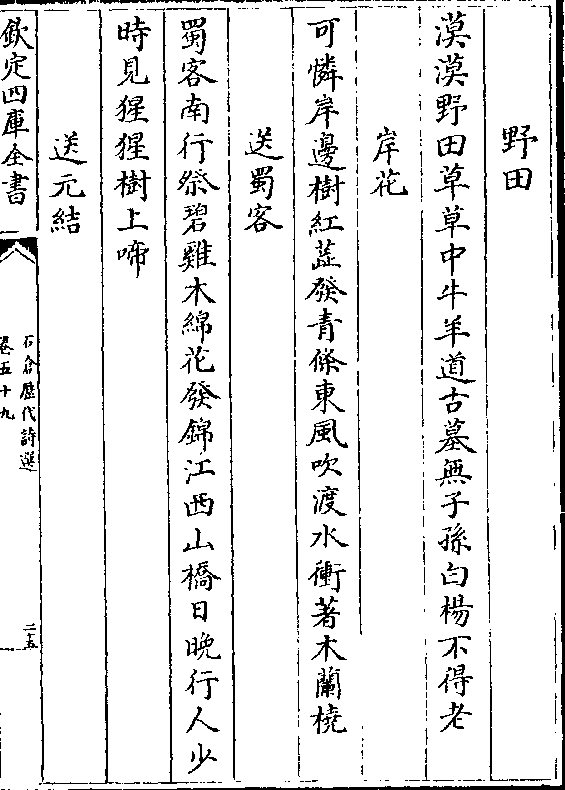 野田
漠漠野田草草中牛羊道古墓無子孫白楊不得老
岸花
可憐岸邊樹紅蕋發青條東風吹渡水衝著木蘭橈
送蜀客
蜀客南行祭碧雞木綿花發錦江西山橋日晩行人少
時見猩猩樹上啼
送元結
欽定四庫全書
石倉歴代詩選
卷五十九
二五